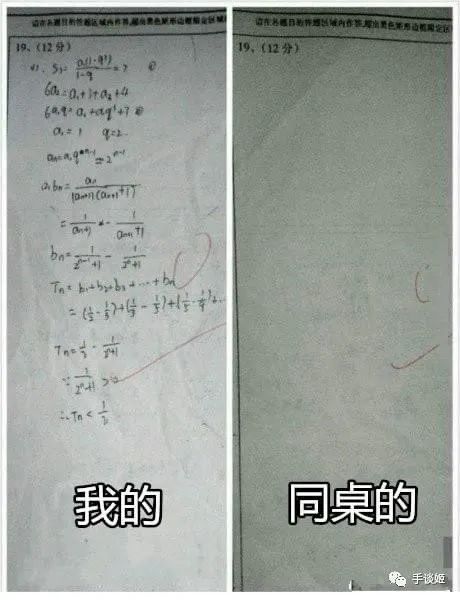 请在各题目的答题区域内作答,超出黑色矩形边框限定区域
19、(12分)
S₃=a₁(1-q³)/1-q=7 ①
6a₂=a₁+3+a₃+4
6a₁q=a₁+a₁q²+7 ②
a₁=1 q=2
aₙ=a₁qⁿ⁻¹=2ⁿ⁻¹
(2) bₙ=aₙ/(aₙ+1)(aₙ₊₁+1)
=1/aₙ+1 - 1/aₙ₊₁+1
bₙ=1/2ⁿ⁻¹+1 - 1/2ⁿ+1
Tₙ=b₁+b₂+b₃+…+bₙ
=(1/2-1/3)+(1/3-1/5)+(1/5-1/9)+…
Tₙ=1/2-1/2ⁿ+1
∵1/2ⁿ+1>0
∴Tₙ<1/2
我的
请在各题目的答题区域内作答,超出黑色矩形边框限定区
19、(12分)
同桌的
手谈姬